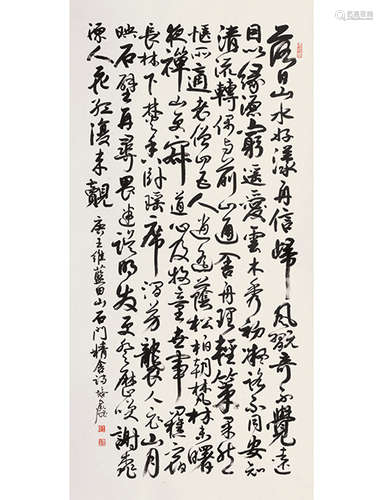 落日山水好漾舟信歸風翫奇不覺遠
因以緣源窮遥愛雲木秀初疑路不同安知
清流轉偶與前山通舍舟理輕策果然
愜所適老僧四五人逍遥蔭松柏朝梵林未曙
夜禪山更寂道心及牧童世事
長林下焚香卧瑶席澗芳襲人衣山月
映石壁再尋畏迷誤明發更登歷笑謝桃
源人花紅復來覿 唐王維藍田山石門精舍詩